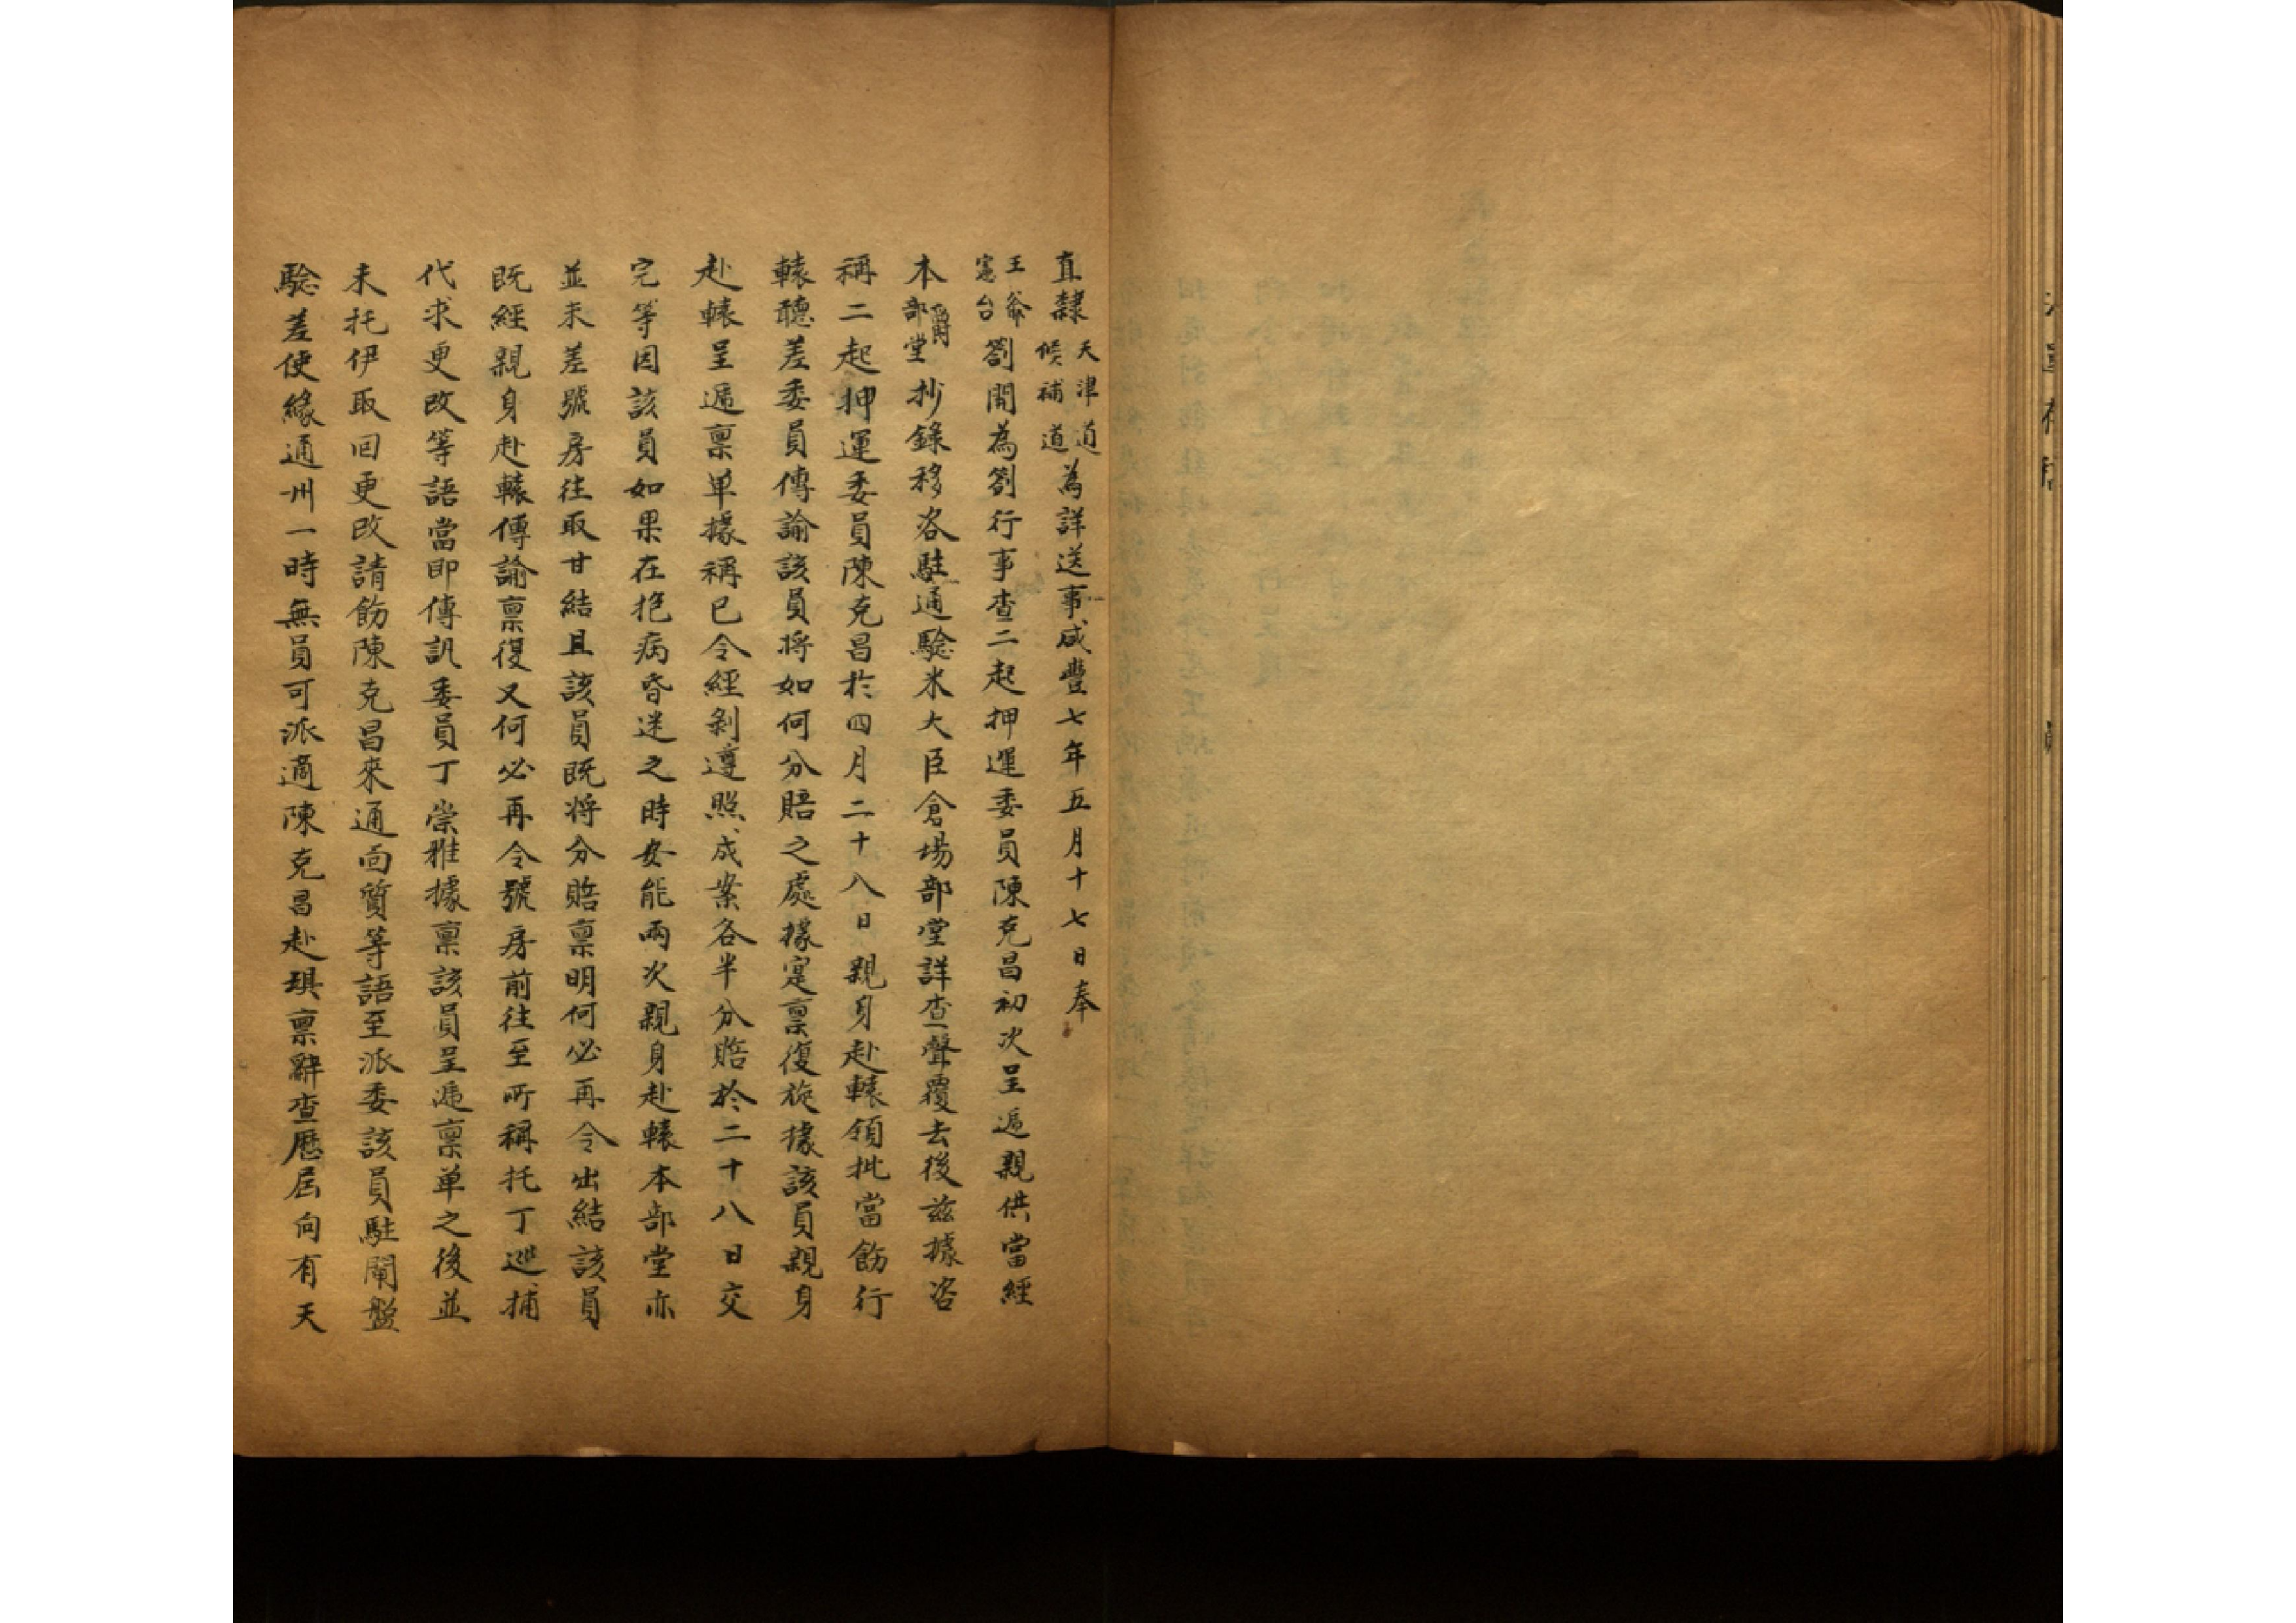 直隸天津道候補道為詳送事咸豐七年五月十七日奉
王爺憲台劄開為劄行事查二起押運委員陳克昌初次呈遞親供當經
本爵部堂抄錄移咨駐通驗米大臣倉場部堂詳查聲覆去後茲據咨
稱二起押運委員陳克昌於四月二十八日親身赴轅領批當飭行
轅聽差委員傳諭該員將如何分賠之處據寔禀復旋據該員親身
赴轅呈遞禀单據稱已令經剝遵照成案各半分賠於二十八日交
完等因該員如果在抱病昏迷之時安能兩次親身赴轅本部堂亦
並未差號房往取甘結且該員既將分賠禀明何必再令出結該員
既經親身赴轅傳諭禀復又何必再令號房前往至所稱托丁巡捕
代求更改等語當即傳訊委員丁崇雅據禀該員呈遞禀单之後並
未托伊取回更改請飭陳克昌來通面質等語至派委該員駐閘盤
驗差使緣通州一時無員可派適陳克昌赴琪禀辭查歷屆向有天